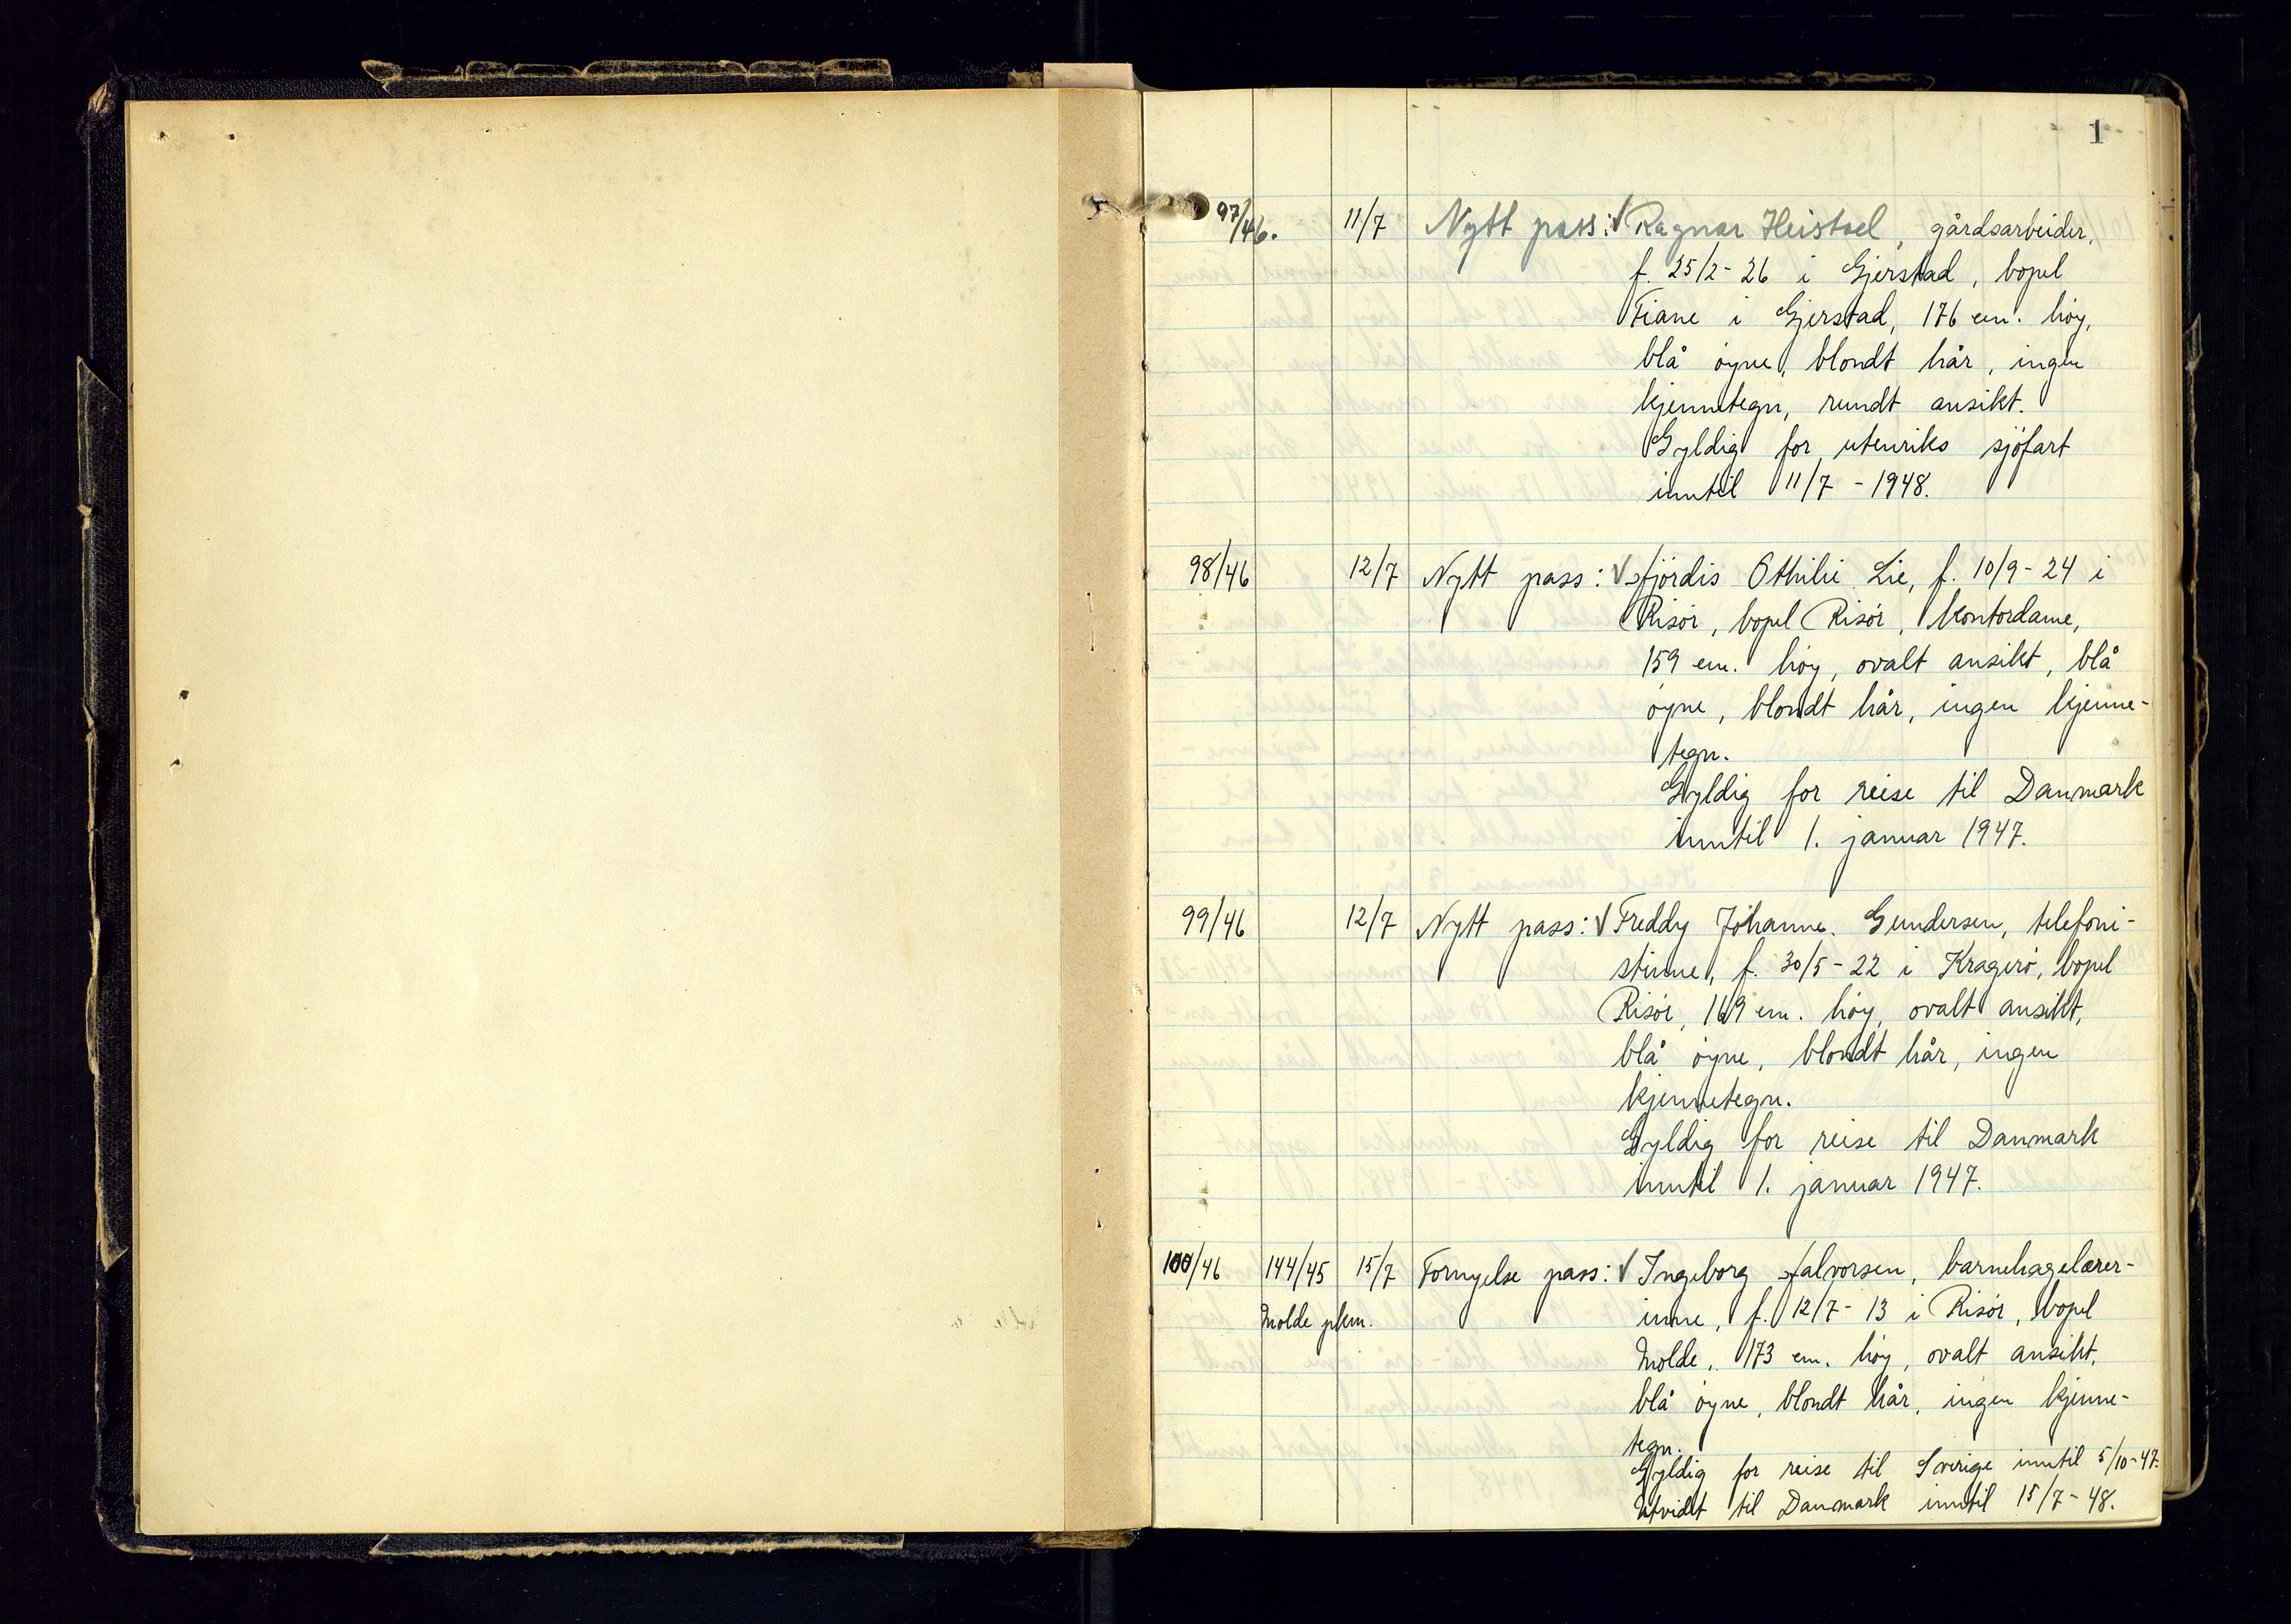 1
97/46. 11/7 Nytt pass: √ Ragnar Heistad, gårdsarbeider,
f. 25/2-26 i Gjerstad, bopel
Fiane i Gjerstad, 176 cm. høy,
blå øyne, blondt hår, ingen
kjennetegn, rundt ansikt.
Gyldig for utenriks sjöfart
inntil 11/7-1948.
98/46 12/7 Nytt pass: √ Hjördis Othilie Lie, f. 10/9-24 i
Risör, bopel Risör, kontordame,
159 cm. höy, ovalt ansikt, blå
öyne, blondt hår, ingen kjenne-
tegn.
Gyldig for reise til Danmark
inntil 1. januar 1947.
99/46 12/7 Nytt pass: √ Freddy Johanne Gundersen, telefoni-
stinne, f. 30/5-22 i Kragerö, bopel
Risör, 169 cm. höy, ovalt ansikt,
blå öyne, blondt hår, ingen
kjennetegn.
Gyldig for reise til Danmark
inntil 1. januar 1947.
100/46 144/45 15/7 Fornyelse pass: √ Ingeborg Halvorsen, barnehagelærer-
Molde pkm. inne, f. 12/7-13 i Risör, bopel
Molde, 173 cm. höy, ovalt ansikt,
blå öyne, blondt hår, ingen kjenne-
tegn.
Gyldig for reise til Sverige inntil 5/10-47.
Utvidet til Danmark inntil 15/7-48.